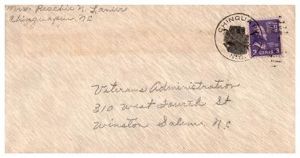 Miss Raschie N. Lanier
Chinquapin, N.C
CHINQUAPIN
N.C.
3 CENTS 3
Veterans Administration
310 West Fourth St
Winston Salem, N.C